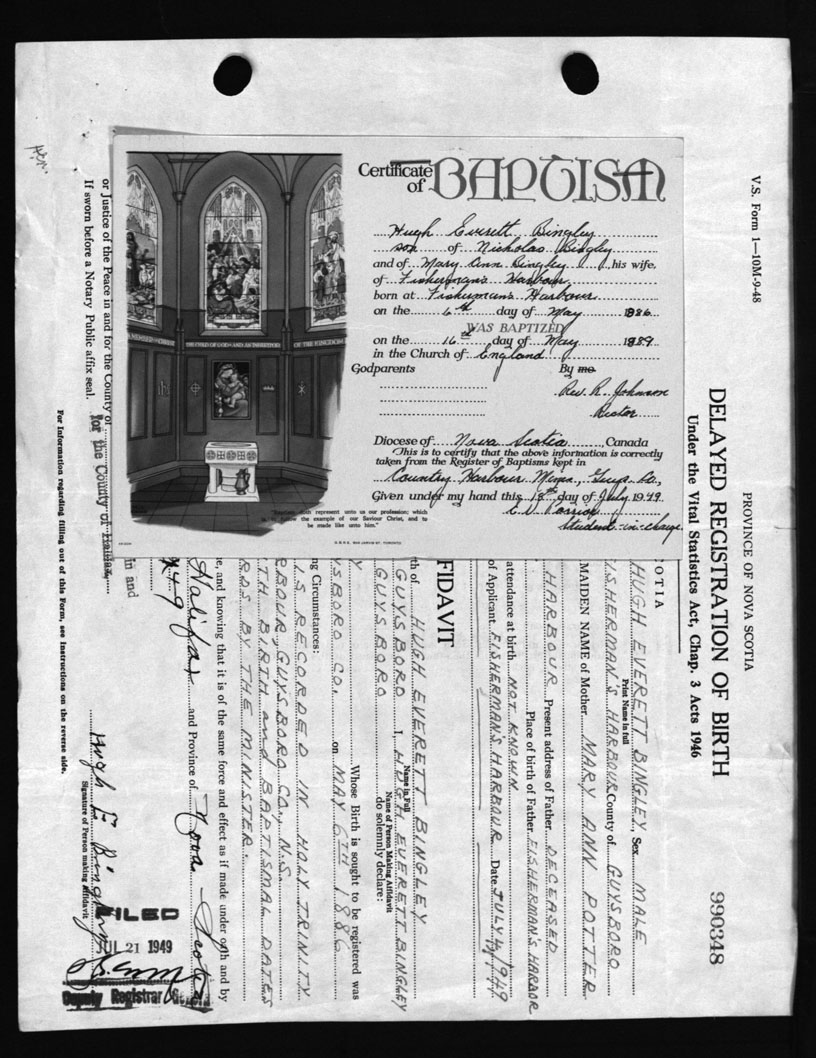 Certificate
of BAPTISM
Hugh Everett Bingley
son of Nicholas Bingley
and of Mary Ann Bingley, his wife,
of Fisherman's Harbour
born at Fisherman's Harbour
on the 6th day of May 1886
WAS BAPTIZED
on the 16th day of May 1889
in the Church of England
Godparents By me
Rev. R. Johnson
Rector
Diocese of Nova Scotia, Canada
This is to certify that the above information is correctly
taken from the Register of Baptisms kept in
Country Harbour Mines, Guys. Co.,
Given under my hand this 18th day of July 1949
Student-in-charge
THE CHILD OF GOD AND AN INHERITOR
OF THE KINGDOM
represent unto us our profession; which
the example of our Saviour Christ, and to
be made like unto him."
V.S. Form 1—10M-9-48
PROVINCE OF NOVA SCOTIA
DELAYED REGISTRATION OF BIRTH
Under the Vital Statistics Act, Chap. 3 Acts 1946
990348
OTIA
HUGH EVERETT BINGLEY, Sex MALE
Print Name in full
ISHERMAN'S HARBOUR County of GUYSBORO
MAIDEN NAME of Mother MARY ANN POTTER
HARBOUR Present address of Father DECEASED
Place of birth of Father FISHERMAN'S HARBOR
attendance at birth NOT KNOWN
of Applicant FISHERMAN'S HARBOUR Date JULY 4/1949
FIDAVIT
th of HUGH EVERETT BINGLEY
Name in Full
GUYSBORO I, HUGH EVERETT BINGLEY
Name of Person Making Affidavit
GUYSBORO do solemnly declare:
Y Whose Birth is sought to be registered was
YSBORO CO. on MAY 6TH 1886
ng Circumstances:
IS RECORDED IN HOLY TRINITY
RBOUR, GUYSBORO CO., N.S.
TH BIRTH and BAPTISMAL DATES
RDS BY THE MINISTER.
e, and knowing that it is of the same force and effect as if made under oath and by
Halifax and Province of Nova Scotia
49
Hugh E Bingley
Signature of Person making Affidavit
in and
for the County of Halifax
or Justice of the Peace in and for the County of
If sworn before a Notary Public affix seal.
For Information regarding filling out of this Form, see Instructions on the reverse side.
FILED
JUL 21 1949
Deputy Registrar General